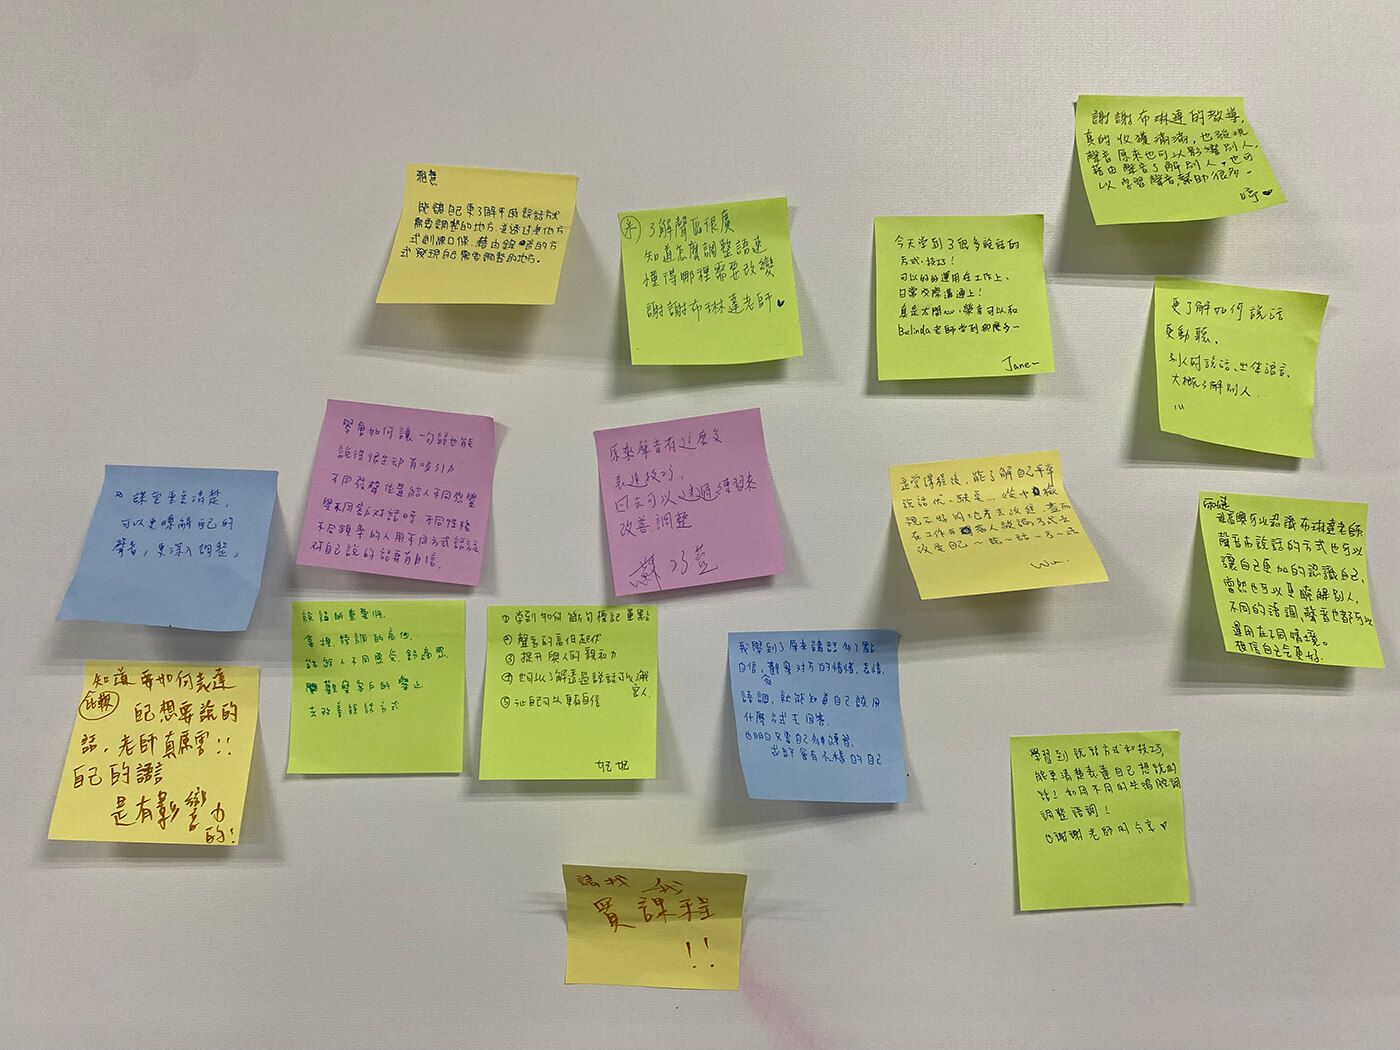 謝謝布琳達的教導，
真的收獲滿滿，也發現
聲音原來也可以影響別人，
藉由聲音了解別人，也可
以學習聲音，幫助很多。
能讓自己更了解平時說話方式
需要調整的地方，並透過其他方
式訓練口條，藉由錄音的方
式發現自己需要調整的地方。
了解聲音很廣
知道怎麼調整語速
懂得哪裡需要改變
謝謝布琳達老師
今天學到了很多說話的
方式、技巧！
可以好好運用在工作上、
日常交際溝通上！
真是太開心、榮幸可以和
Belinda老師學到那麼多～
Jane
更了解如何說話
更動聽、
別人的說話、肢體語言、
大概了解別人.
學會如何讓一句話也能
說得很生動有吸引力
不同發聲位置給人不同感覺
與不同對話時 不同性格
不同頻率的人用不同方式話
對自己說的話要有自信.
原來聲音有這麼多
表達技巧，
回去可以透過練習來
改善調整
蘇巧
課堂重點清楚，
可以更瞭解自己的
聲音，更深入調整，
這堂課程後，能了解自己平常
說話優、缺點... 從中檢
視不好的地方去改進，進而
在工作
改變自己～說～話～方～式
Wu.
很高興可以認識布琳達老師
聲音和說話的方式也可以
讓自己更加的認識自己，
當然也可以更瞭解別人，
不同的語調、聲音也都可以
運用在不同情境。
相信自己會更好.
說話的重要性
掌握語調的高低
能給人不同感受 舒適感
觀察客戶的舉止
去改善說話方式
① 學到如何斷句標記重點
② 聲音的高低起伏
③ 提升與人的親和力
④ 也可以了透過說話可以
⑤ 讓自己可以更有自信
妃妃
我學到了原來講話多了點
自信、觀察對方的情緒、表情、
語調、就能知道自己該用
什麼方式去回答.
也明白只要自己多加練習，
也許會有不一樣的自己
知道要如何表達
自己想要說的
話，老師真厲害！！
自己的語言
是有影響力
的！
學習到說話方式和技巧，
能更清楚表達自己想說的
話！利用不同的共鳴腔調
調整語調！
也謝謝老師的分享
買課程
!!